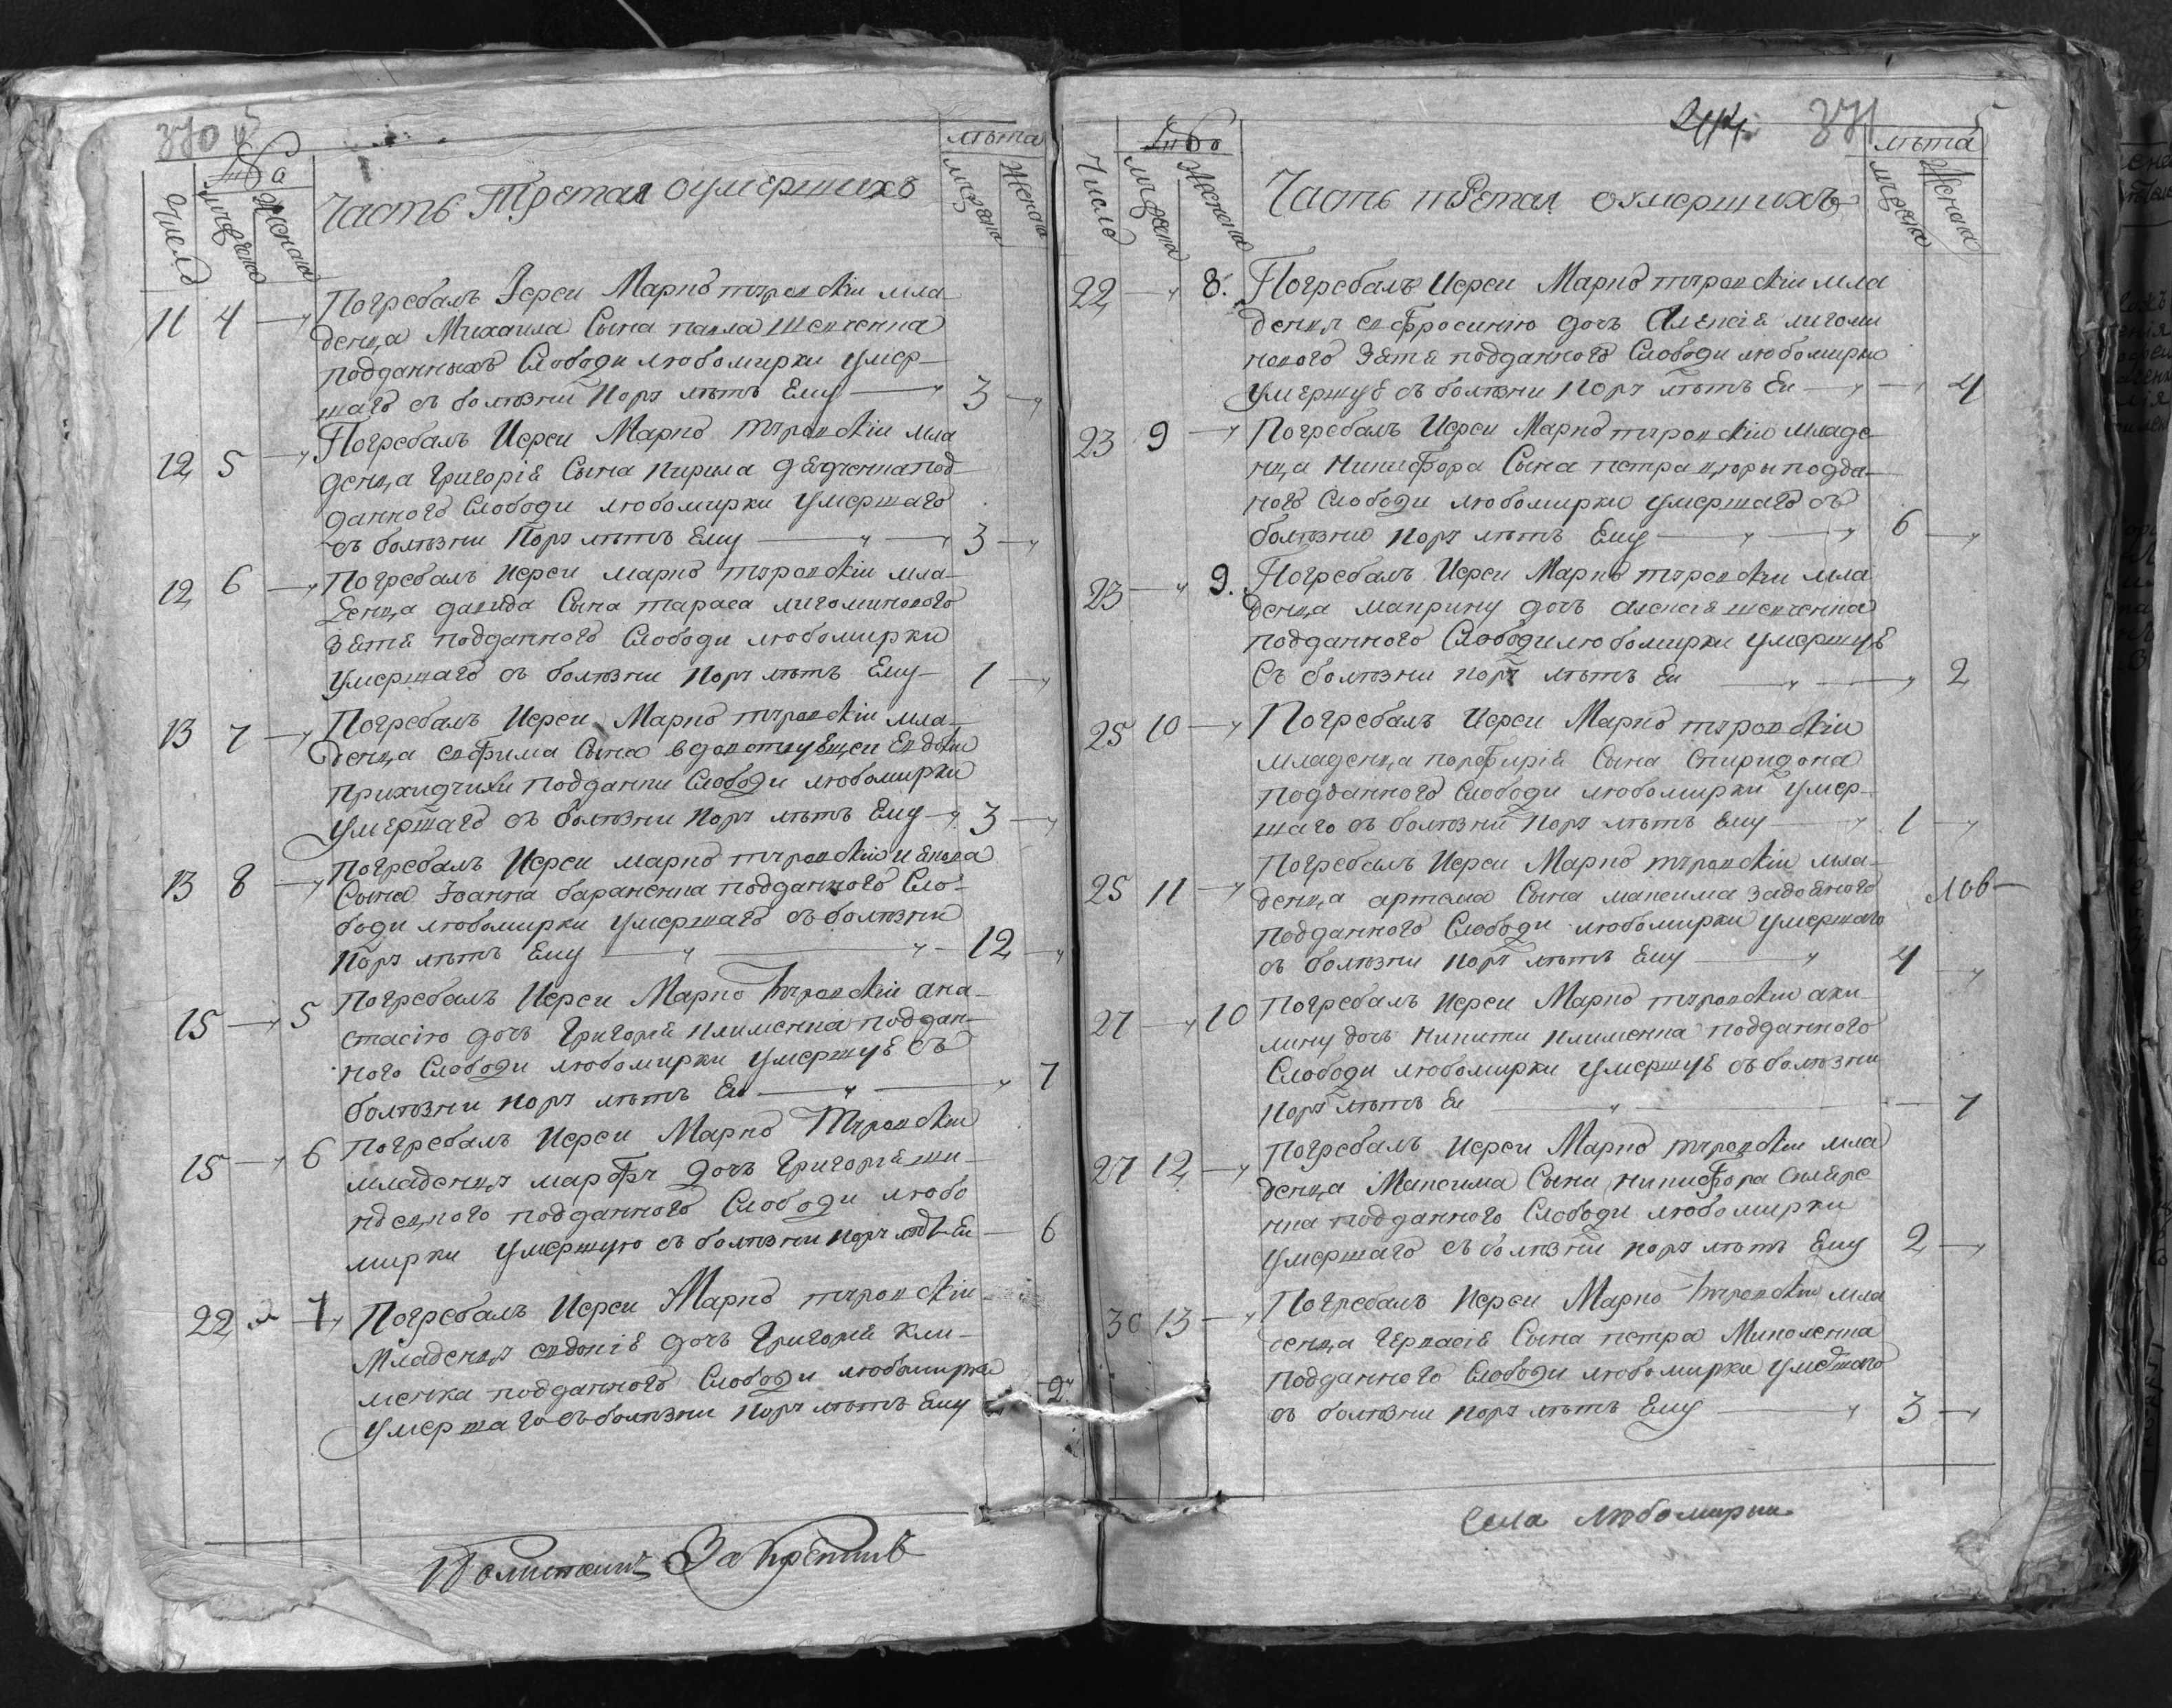 370
лѣта
Число
мужеска
женска
Часть Третая оумершихъ
мужеска
женска
11 4 Погребалъ Іереи Марко тырокскіи мла
денца Михаила Сына павла шевченка
подданныхъ Слободи любомирки умер
шаго съ болѣзни коръ лѣтъ Ему 3
12 5 Погребалъ Иереи Марко тырокскіи мла
денца григорія Сына кирила дядченка под
данного Слободи любомирки умершаго
съ болѣзни коръ лѣтъ Ему 3
12 6 Погребалъ иереи марко тырокскіи мла
денца давида Сына тараса лигоминового
зятя подданного Слободи любомирки
умершаго съ болѣзни коръ лѣтъ Ему 1
13 7 Погребалъ Иереи Марко тырокскіи мла
денца евфима Сына вдовствующеи Евдокіи
подданки Слободи любомирки
умершаго съ болѣзни коръ лѣтъ Ему 3
13 8 Погребалъ Иереи марко тырокскіи иякова
Сына Іоанна бараненка подданного Сло
боди любомирки умершаго съ болѣзни
коръ лѣтъ Ему 12
15 5 Погребалъ Иереи Марко тырокскіи ана
стасію дочъ григорія клименка поддан
ного Слободи любомирки умершую съ
болѣзни коръ лѣтъ Еи 7
15 6 Погребалъ Иереи Марко тырокскіи
младенца марфу дочъ григорія
подданного Слободи любо
мирки умершую съ болѣзни коръ лѣтъ Еи 6
22 7 Погребалъ Иереи Марко тырокскіи
Младенца евдокію дочъ григорія кли
менка подданного Слободи любомирки
умершаго съ болѣзни коръ лѣтъ Ему 2
371
лѣта
Число
мужеска
женска
Часть третая оумершихъ
мужеска
женска
22 8 Погребалъ Иереи Марко тырокскіи мла
денца евфросинію дочъ Алексія лигоми
нового зятя подданного Слободи любомирки
умершую съ болѣзни коръ лѣтъ Еи 4
23 9 Погребалъ Иереи Марко тырокскіи младе
нца никифора Сына петра цюри подда
ного Слободи любомирки умершаго съ
болѣзни коръ лѣтъ Ему 6
23 9 Погребалъ Иереи Марко тырокскіи мла
денца макрину дочъ алексія шевченка
подданного Слободи любомирки умершую
Съ болѣзни коръ лѣтъ Еи 2
25 10 Погребалъ Иереи Марко тырокскіи
младенца порфирія Сына Спиридона
подданного Слободи любомирки умер
шаго съ болѣзни коръ лѣтъ Ему 1
25 11 Погребалъ Иереи Марко тырокскіи мла
денца артема Сына максима задояного
подданного Слободи любомирки умершаго
съ болѣзни коръ лѣтъ Ему 4
27 10 Погребалъ Иереи Марко тырокскіи аки
лину дочъ никити клименка подданного
Слободи любомирки умершую съ болѣзни
коръ лѣтъ Еи 7
27 12 Погребалъ Иереи Марко тырокскіи мла
денца Максима Сына никифора
подданного Слободи любомирки
умершаго съ болѣзни коръ лѣтъ Ему 2
30 13 Погребалъ Иереи Марко тырокскіи мла
денца Гервасія Сына петра Миколенка
подданного Слободи любомирки умершаго
съ болѣзни коръ лѣтъ Ему 3
Села Любомирки